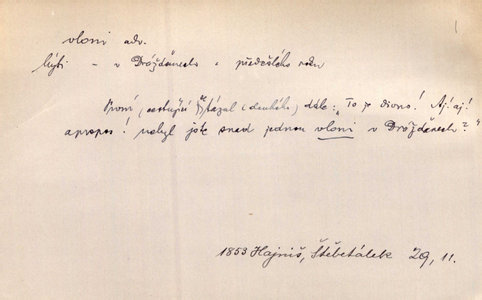 vloni adv.
býti – v Drážďanech – předešlého roku
První (cestující) tázal (druhého) dále: "To je divno! Aj! aj!
apropos! nebyl jste snad jednou vloni v Drážďanech?"
1853 Hajniš, Štěbetálek 29, 11.